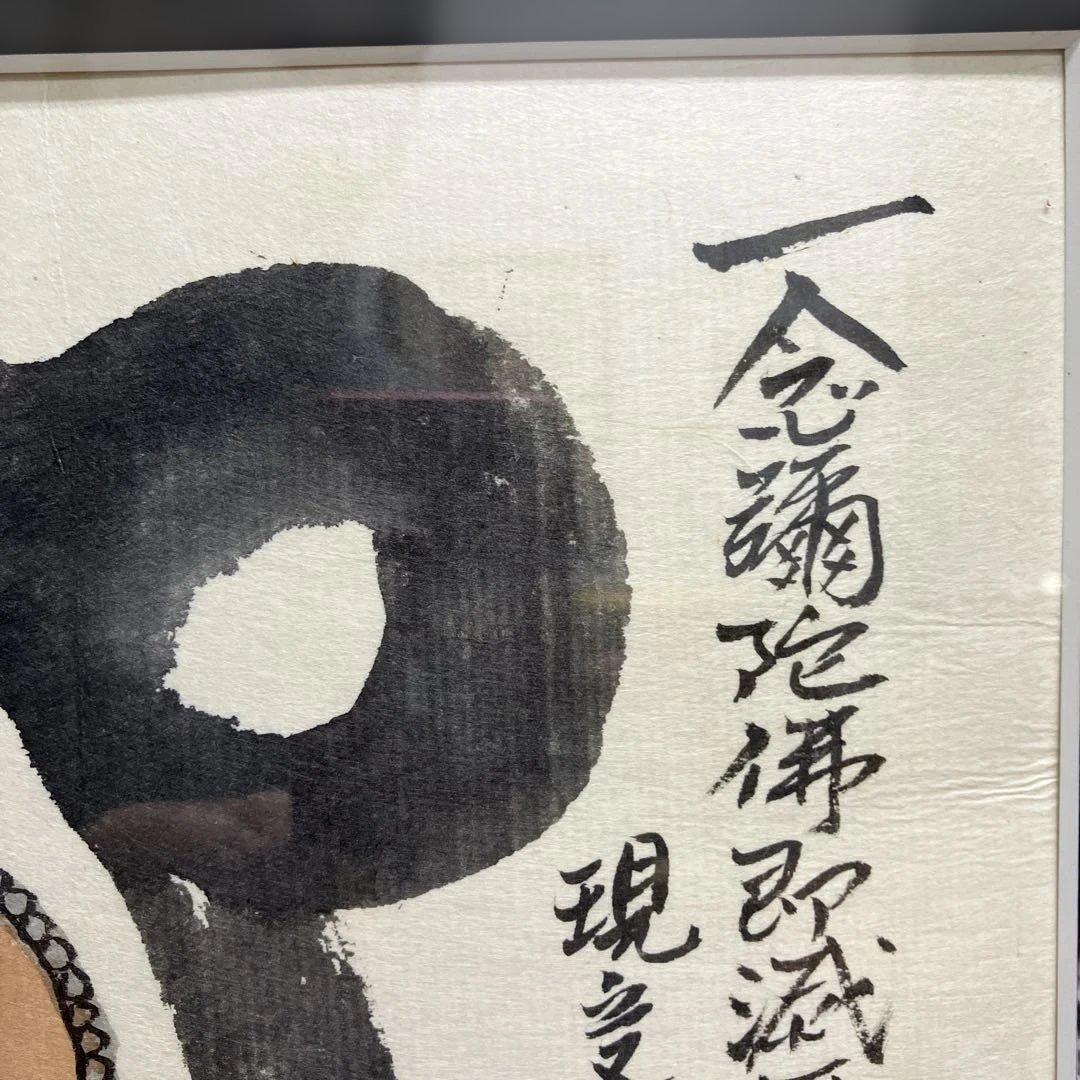 一念彌陀佛即滅
現受